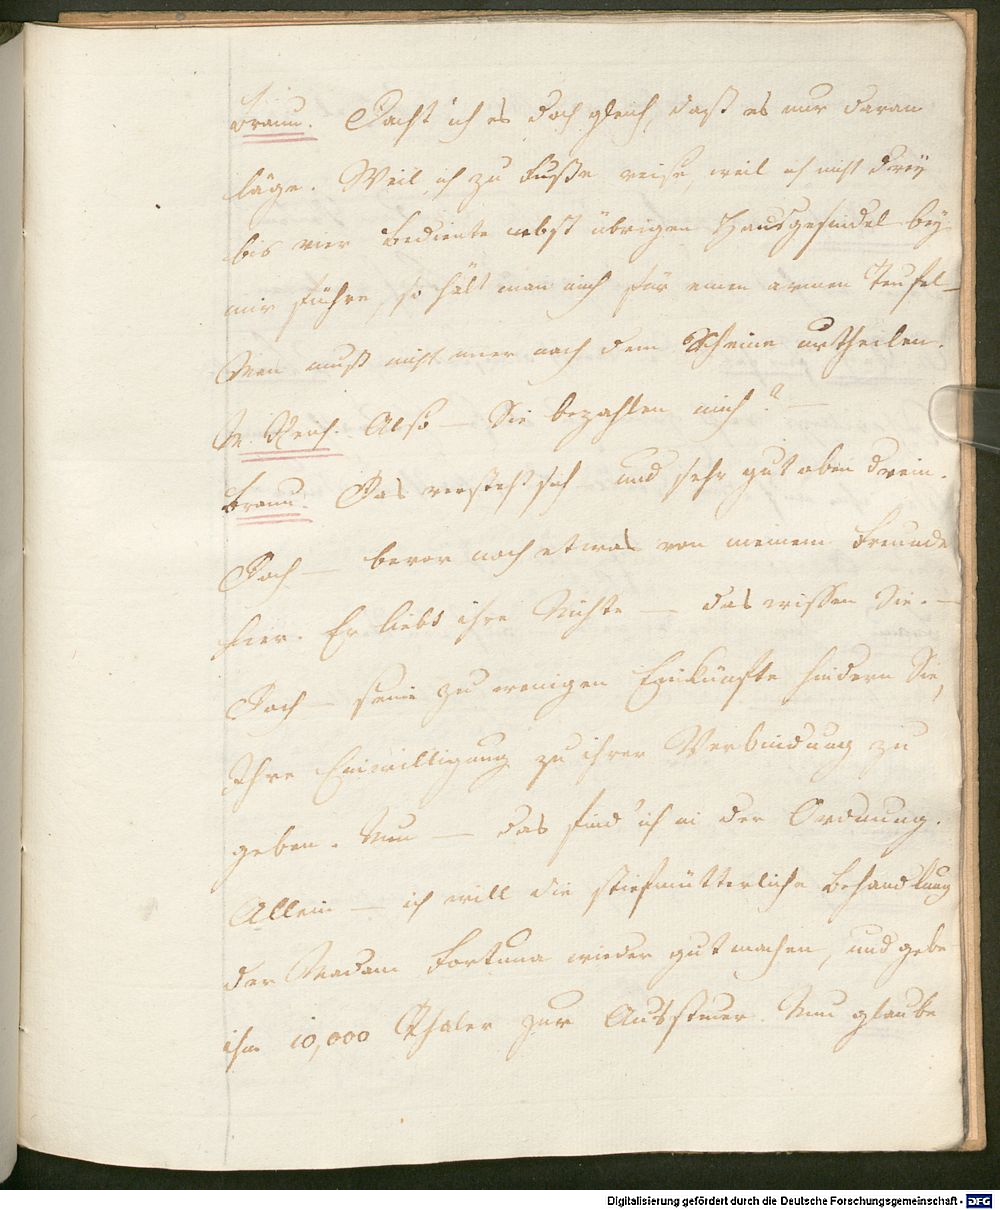 Braun. Dacht' ich es doch gleich, daß es nur daran
läge. Weil ich zu Fuße reise, weil ich nicht drey
bis vier Bediente nebst übrigen Hausgesindel bey
mir führe, so hält man mich für einen armen Teufel –
Man muß nicht immer nach dem Scheine urtheilen.
M. Reich. Also – Sie bezahlen mich? –
Braun. Das versteht sich – und sehr gut oben drein.
Doch – bevor noch etwas von meinem Freunde
hier. Er liebt ihre Nichte – das wissen Sie. –
Doch – seine zu wenigen Einkünfte hindern Sie,
Ihre Einwilligung zu ihrer Verbindung zu
geben. Nun – das find' ich in der Ordnung.
Allein – ich will die stiefmütterliche Behandlung
der Madam Fortuna wieder gut machen, und gebe
ihm 10,000 Thaler zur Aussteuer. Nun glaube
Digitalisierung gefördert durch die Deutsche Forschungsgemeinschaft - DFG